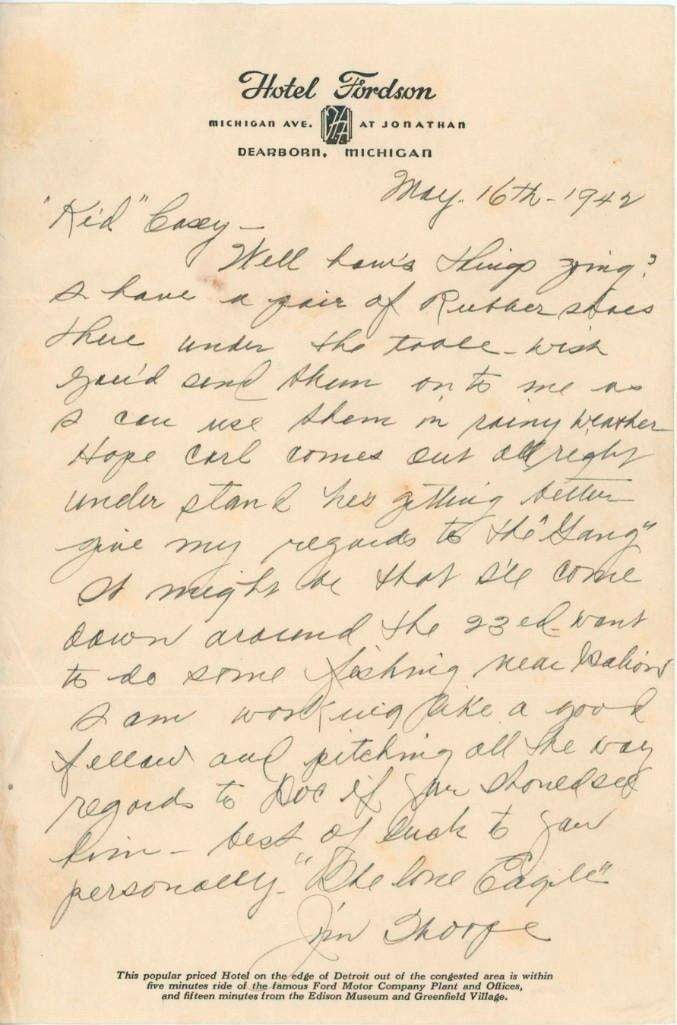 Hotel Fordson
MICHIGAN AVE. AT JONATHAN
DEARBORN, MICHIGAN
May. 16th - 1942
"Kid" Casey -
Well how's things going?
I have a pair of Rubber shoes
there under the table - wish
you'd send them on to me as
I can use them in rainy weather
Hope Carl comes out all right
understand he's getting better
give my regards to the "Gang"
It might be that I'll come
down around the 23ed - want
to do some fishing near
I am working like a good
fellow and pitching all the way
regards to Doc if you should see
him - best of luck to you
personally - "The lone Eagle"
Jim Thorpe
This popular priced Hotel on the edge of Detroit out of the congested area is within
five minutes ride of the famous Ford Motor Company Plant and Offices,
and fifteen minutes from the Edison Museum and Greenfield Village.